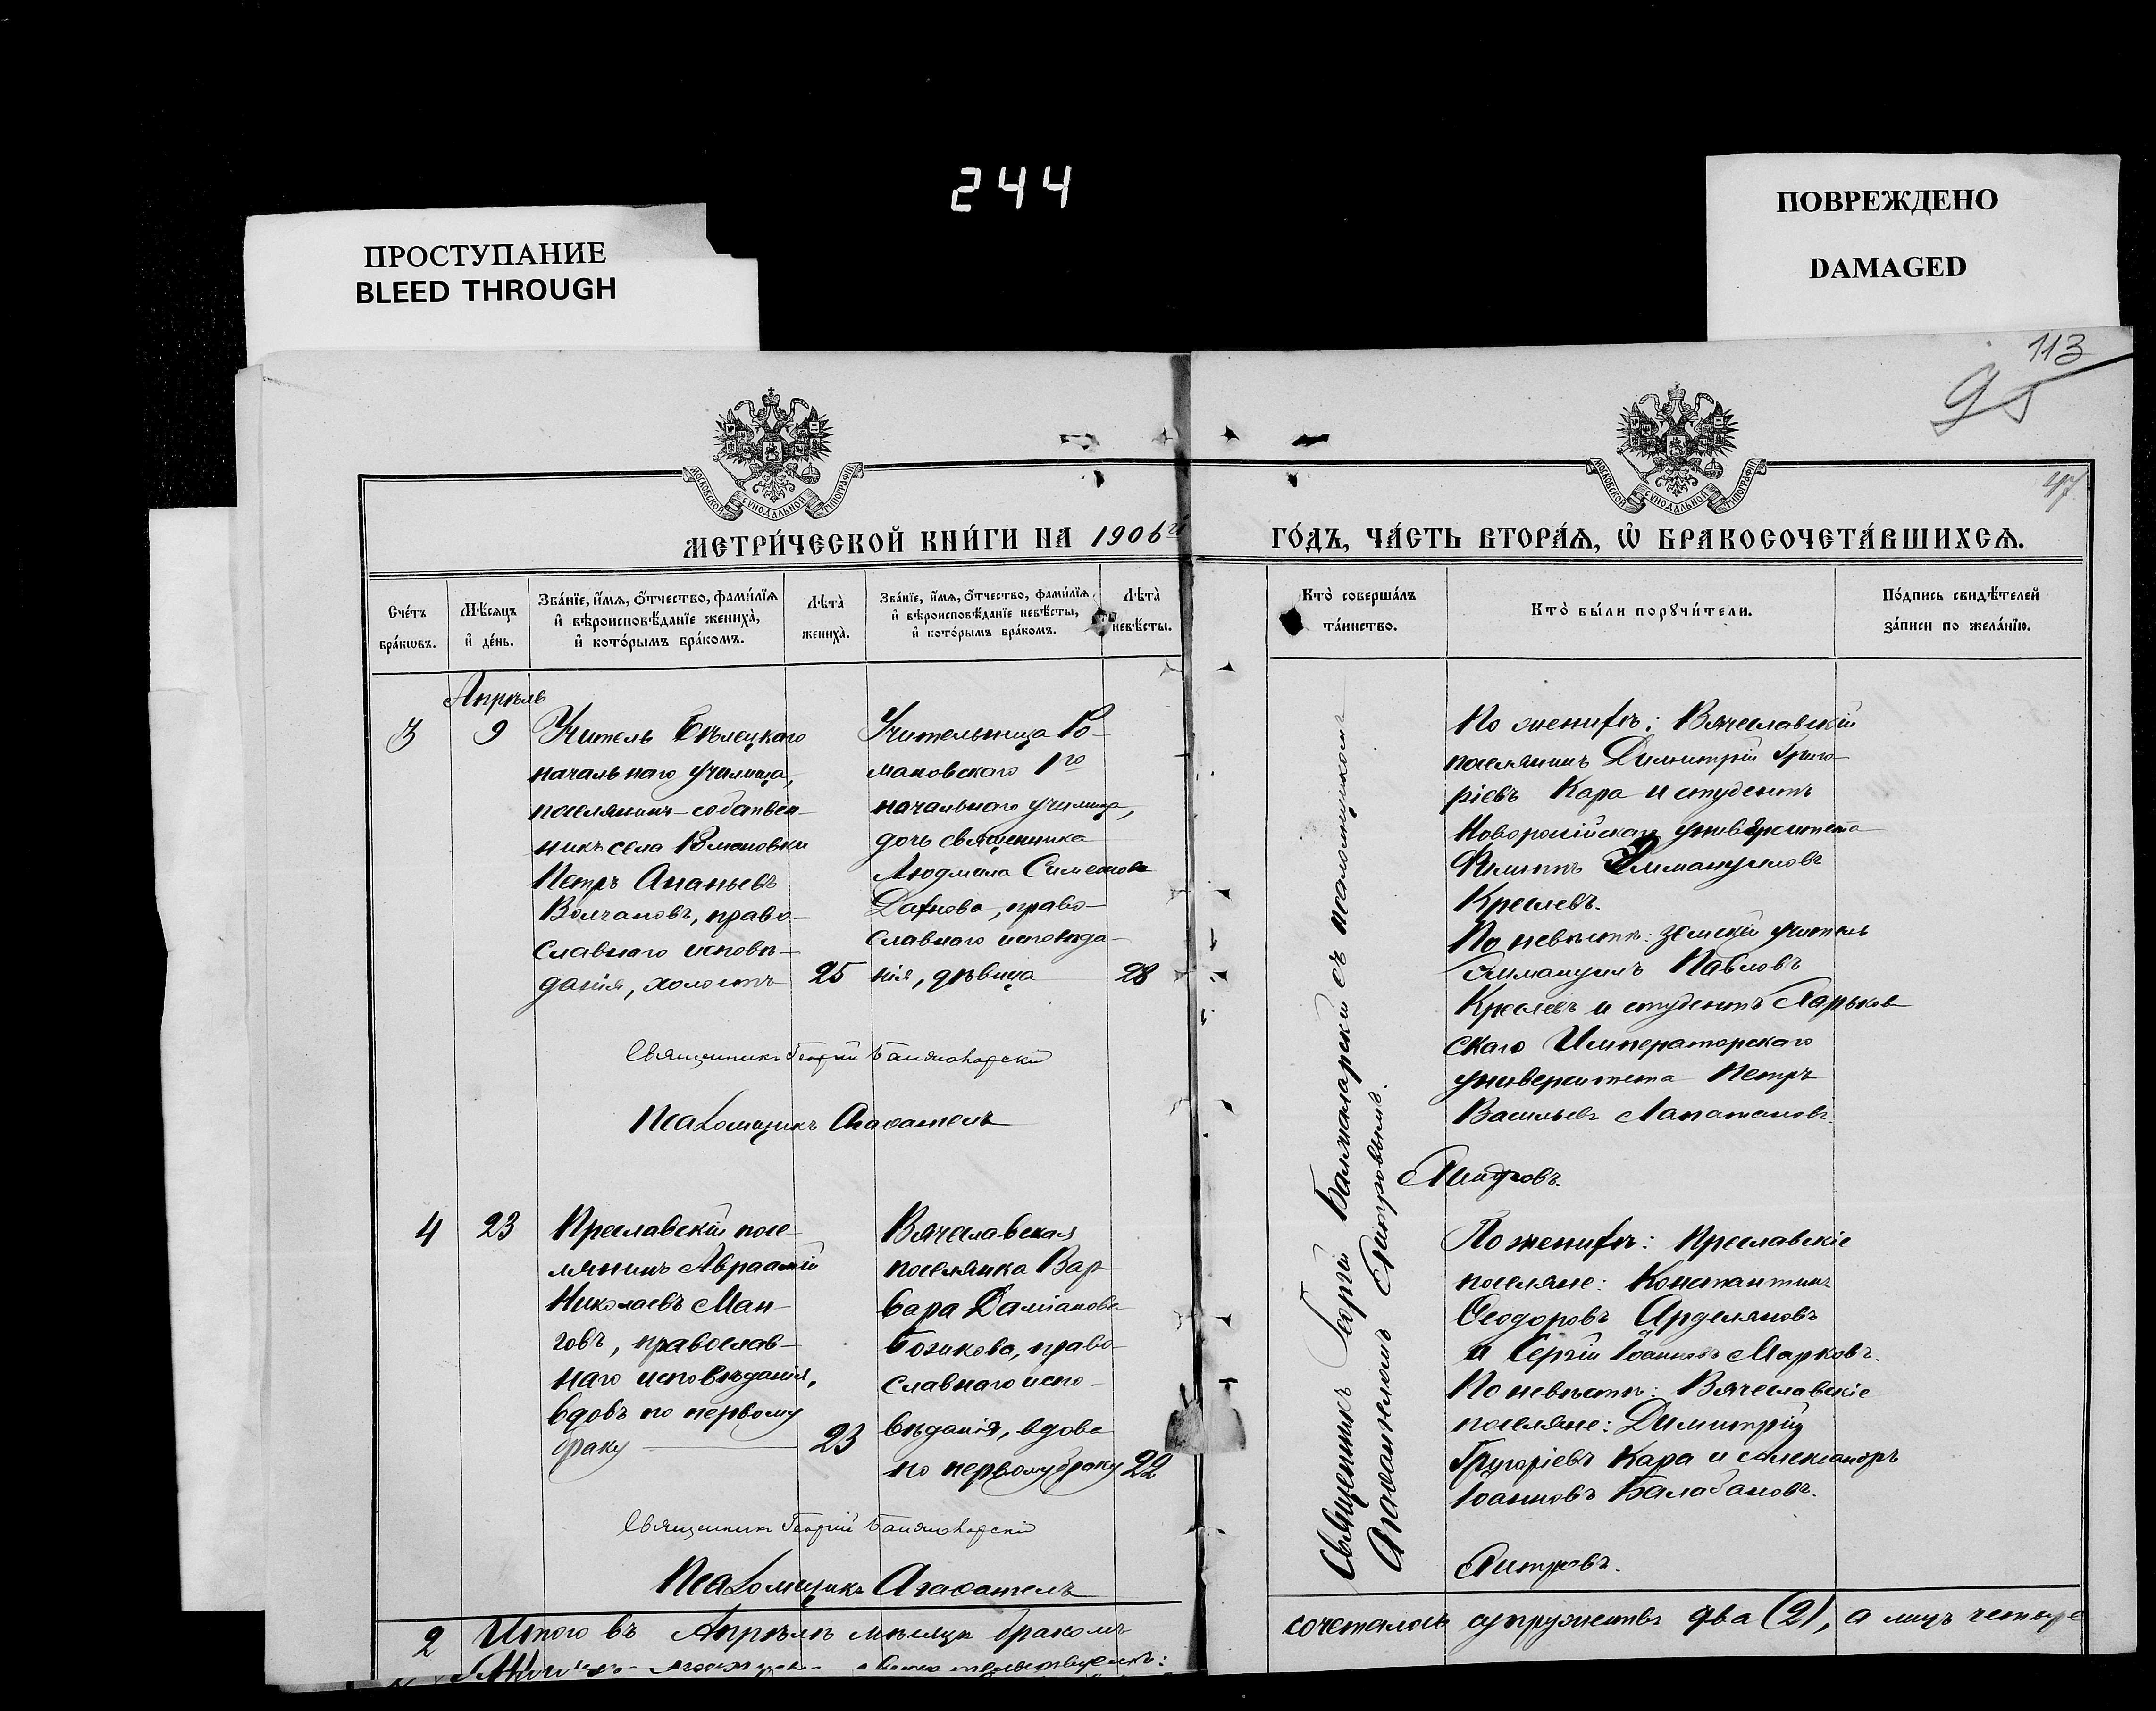 244
ПРОСТУПАНИЕ
BLEED THROUGH
ПОВРЕЖДЕНО
DAMAGED
113
95
47
МОСКОВСКОЙ СУНОДАЛЬНОЙ ТИПОГРАФІИ
МОСКОВСКОЙ СУНОДАЛЬНОЙ ТИПОГРАФІИ
МЕТРИ́ЧЕСКОЙ КНИ́ГИ НА 1906й
ГО́ДЪ, ЧА́СТЬ ВТОРА́Ѧ, Ѡ҆ БРАКОСОЧЕТА́ВШИХСѦ.
Сче́тъ
бра́кѡвъ.
Мѣ́сѧцъ
и҆ де́нь.
Зва́нїе, и҆́мѧ, ѻ҆́тчество, фами́лїѧ
и҆ вѣроисповѣ́данїе жениха̀,
и҆ кото́рымъ бра́комъ.
Лѣта̀
жениха̀.
Зва́нїе, и҆́мѧ, ѻ҆́тчество, фами́лїѧ
и҆ вѣроисповѣ́данїе невѣ́сты,
и҆ кото́рымъ бра́комъ.
Лѣта̀
невѣ́сты.
Кто̀ соверша́лъ
та́инство.
Кто̀ бы́ли порꙋчи́тели.
По́дпись свидѣ́телей
за́писи по жела́нїю.
Апрѣль
3
9
Учитель Бѣлецкаго
начальнаго училища,
поселянинъ-собствен-
никъ села Романовки
Петръ Ананьевъ
Волчановъ, право-
славнаго исповѣ-
данія, холостъ
25
Учительница Ро-
мановскаго 1го
начальнаго училища,
дочь священника
Людмила Симеонова
право-
славнаго исповѣда-
нія, дѣвица
28
Священникъ Георгій
Псаломщикъ Агаѳангелъ
Священникъ Георгій съ псаломщикомъ
Агаѳангеломъ Дмитровымъ.
По женихѣ: Вячеславскій
поселянинъ Димитрій Григо-
ріевъ Кара и студентъ
Новороссійскаго университета
Филиппъ Эммануиловъ
Креслевъ.
По невѣстѣ: земскій учитель
Эммануилъ Павловъ
Креслевъ и студентъ Харьков
скаго Императорскаго
университета Петръ
Васильевъ
4
23
Преславскій посе-
лянинъ Авраамій
Николаевъ Ман-
говъ, православ-
наго исповѣданія,
вдовъ по первому
браку
23
Вячеславская
поселянка Вар-
вара Даміанова
Божкова, право-
славнаго испо-
вѣданія, вдова
по первому браку
22
Священникъ Георгій
Псаломщикъ Агаѳангелъ
По женихѣ: Преславскіе
поселяне: Константинъ
Ѳеодоровъ Арделяновъ
и Сергій Іоанновъ Марковъ.
По невѣстѣ: Вячеславскіе
поселяне: Димитрій
Григоріевъ Кара и Александръ
Іоанновъ Балабановъ.
Дмитровъ.
2
Итого въ Апрѣлѣ мѣсяцѣ бракомъ
сочеталось супружествъ два (2), а лицъ четыре